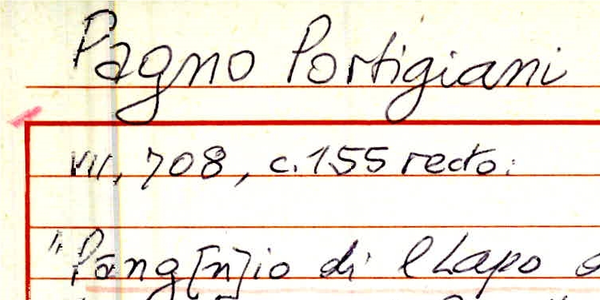 Pagno Portigiani
VII, 708, c. 155 recto:
"Pang[n]io di Lapo